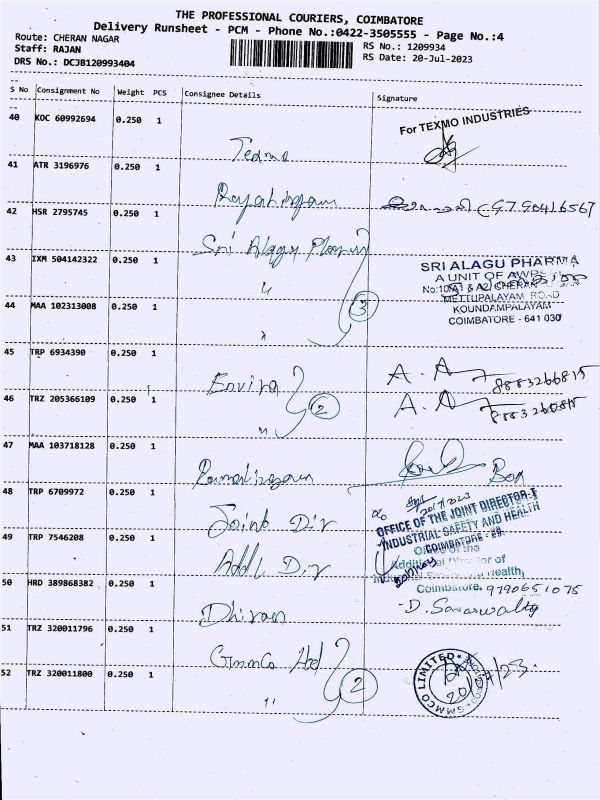 THE PROFESSIONAL COURIERS, COIMBATORE
Delivery Runsheet - PCM - Phone No.:0422-3505555 - Page No.:4
Route: CHERAN NAGAR
RS No.: 1209934
Staff: RAJAN
RS Date: 20-Jul-2023
DRS No.: DCJB120993404
S No Consignment No Weight PCS Consignee Details Signature
40 KOC 60992694 0.250 1
For TEXMO INDUSTRIES
41 ATR 3196976 0.250 1
42 HSR 2795745 0.250 1
9790416567
Sri Alagu
43 IXM 504142322 0.250 1
SRI ALAGU PHARMA
A UNIT OF
METTUPALAYAM ROAD
KOUNDAMPALAYAM
COIMBATORE - 641 030
44 MAA 102313008 0.250 1
3
45 TRP 6934390 0.250 1
Envira
A. A
8883266815
46 TRZ 205366109 0.250 1
2
A. A
47 MAA 103718128 0.250 1
48 TRP 6709972 0.250 1
Joint Dir
20/7/2023
OFFICE OF THE JOINT DIRECTOR-I
INDUSTRIAL SAFETY AND HEALTH
COIMBATORE
49 TRP 7546208 0.250 1
Addl Dir
Office of the
Additional Director of
Industrial Safety Health,
Coimbatore.
9790651075
50 HRD 389868382 0.250 1
51 TRZ 320011796 0.250 1
GMMCO LIMITED
52 TRZ 320011800 0.250 1
2